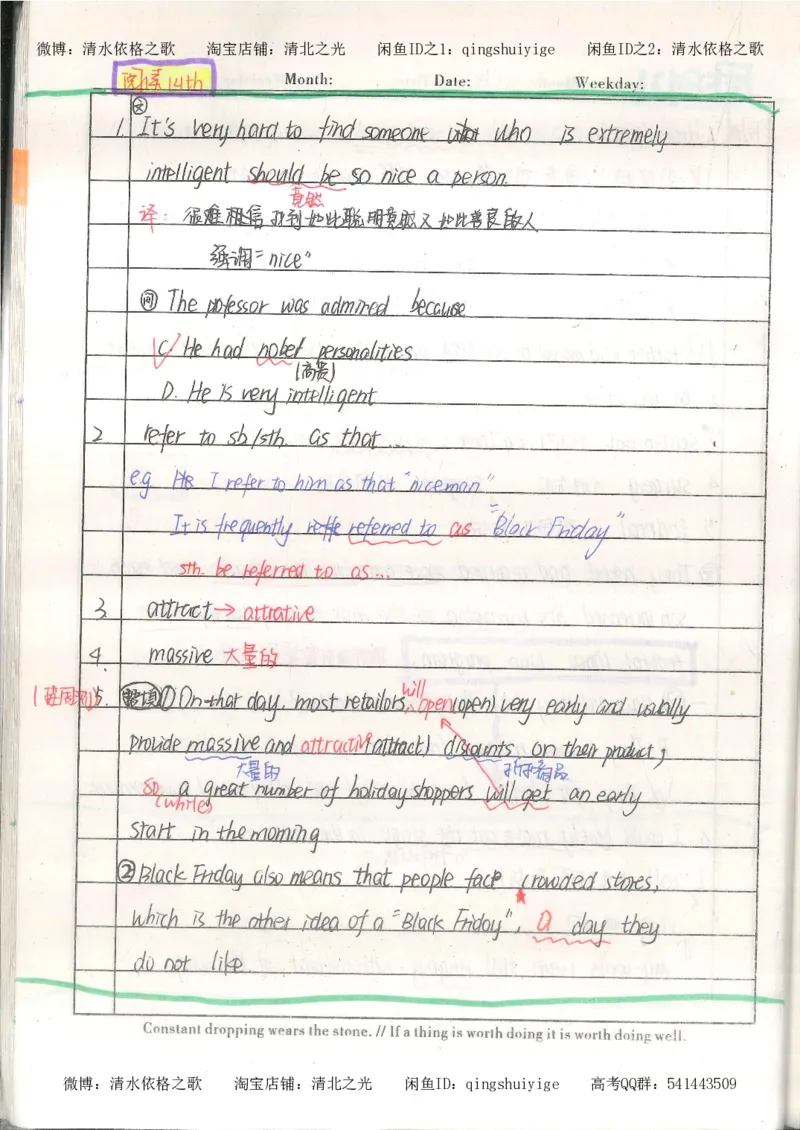 微博：清水依格之歌 淘宝店铺：清北之光 闲鱼ID之1：qingshuiyige 闲鱼ID之2：清水依格之歌
阅读14th Month: Date: Weekday:
1. It's very hard to find someone who is extremely
intelligent should be so nice a person.
竟然
译：很难相信找到如此聪明竟然又如此善良的人
强调"nice"
问 The professor was admired because
C. He had nobel personalities
(高贵)
D. He is very intelligent
2 refer to sb/sth. as that...
e.g. I refer to him as that "niceman"
It is frequently referred to as "Black Friday"
sth. be referred to as...
3. attract → attrative
4. massive 大量的
5. ① On that day, most retailors will open (open) very early and usually
provide massive and attractive (attract) discounts on their product,
大量的
so a great number of holiday shoppers will get an early
(while)
start in the morning
② Black Friday also means that people face crowded stores,
which is the other idea of a "Black Friday", a day they
do not like.
Constant dropping wears the stone. // If a thing is worth doing it is worth doing well.
微博：清水依格之歌 淘宝店铺：清北之光 闲鱼ID：qingshuiyige 高考QQ群：541443509